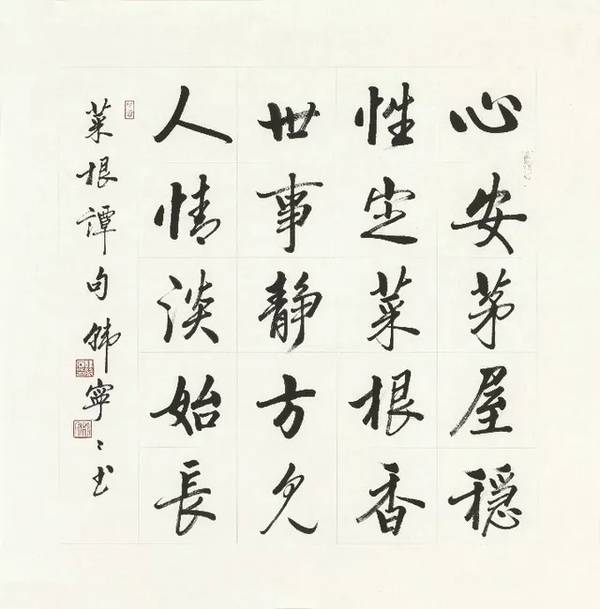 心安茅屋穩
性定菜根香
世事静方見
人情淡始長
菜根譚句韩寧寧书